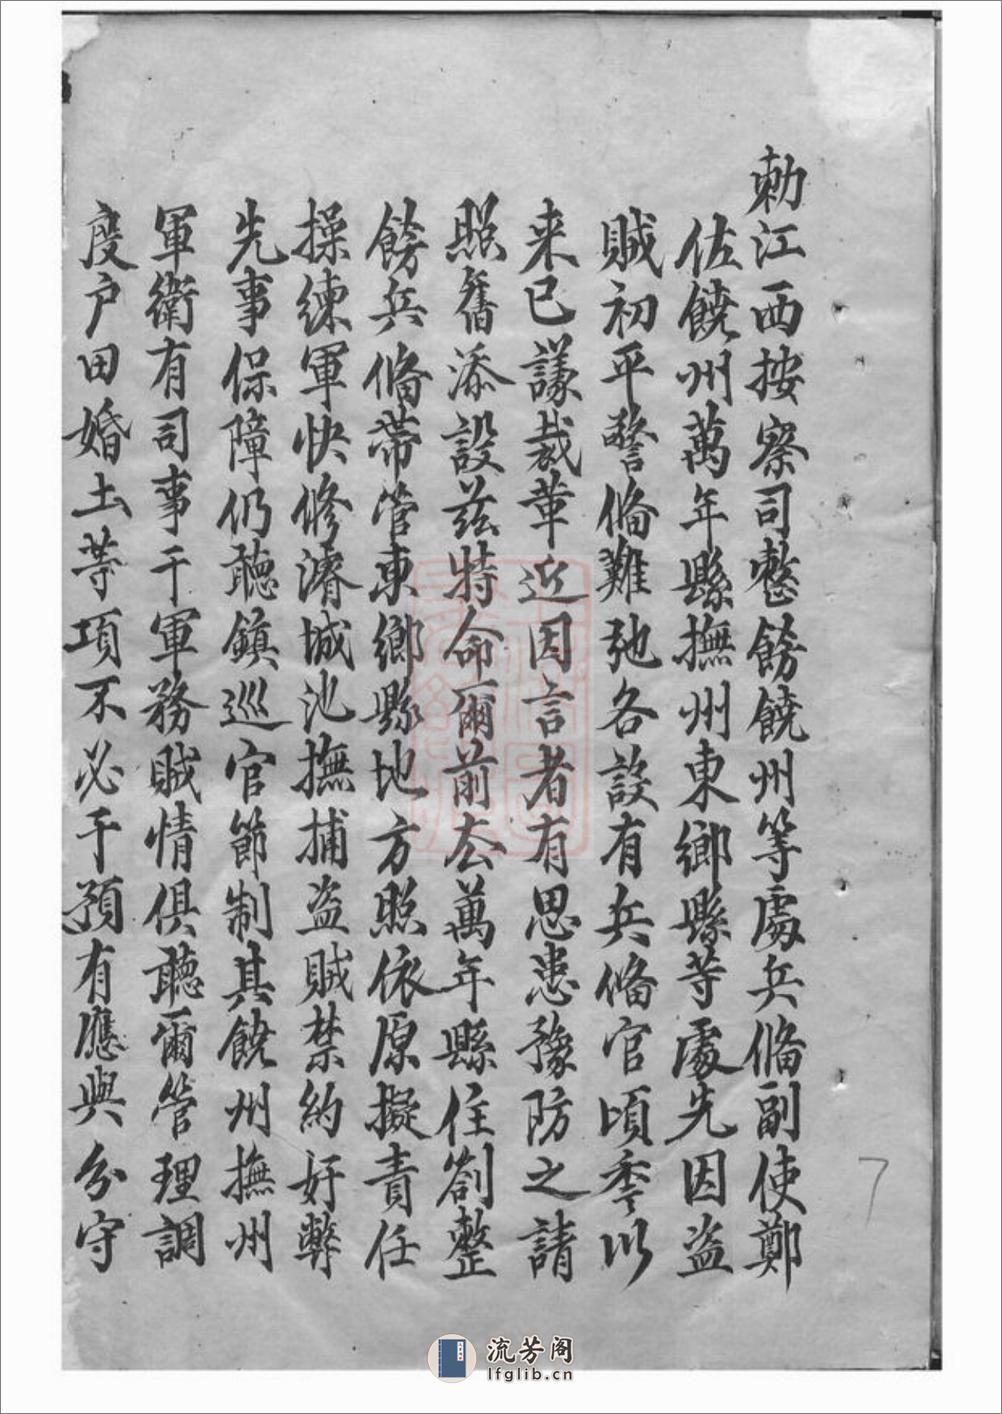 勅江西按察司整飭饒州等處兵俻副使鄭
佐饒州萬年縣撫州東鄉縣等處先因盗
賊初平警俻難弛各設有兵俻官頃季以
来已議裁革近因言者有思患豫防之請
照舊添設兹特命爾前去萬年縣住劄整
飭兵俻帯管東鄉縣地方照依原擬責任
操練軍快修濬城池撫捕盗賊禁約奸弊
先事保障仍聽鎮巡官節制其饒州撫州
軍衛有司事干軍務賊情俱聽爾管理調
度户田婚土等項不必干預有應與分守
7
流芳阁
lfglib.cn